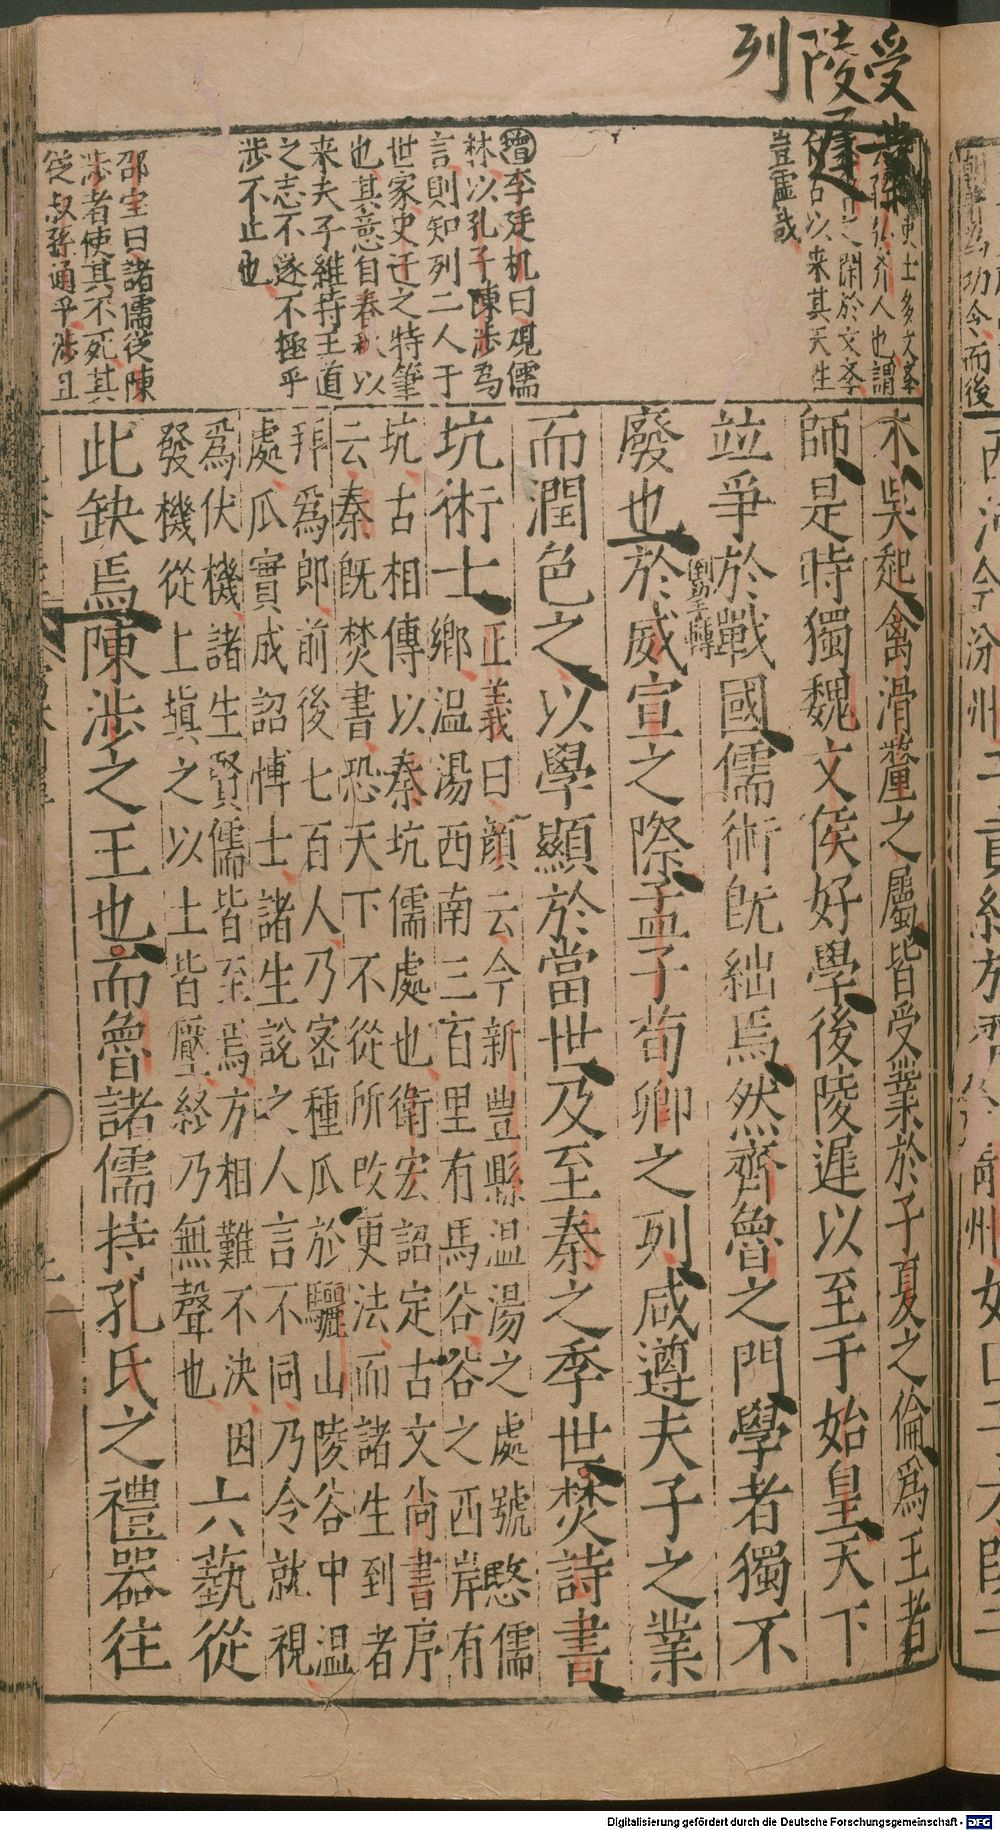 受業
陵遲
列
士多文學
人也謂
之閒於文李
古以来其天性
豈虛哉
增李廷机曰觀儒
林以孔子陳涉爲
言則知列二人于
世家史迁之特筆
也其意自春秋以
来夫子維持王道
之志不遂不極乎
涉不止也
邵宝曰諸儒從陳
涉者使其不死其
從叔孫通乎涉且
木吳起禽滑釐之屬皆受業於子夏之倫爲王者
師是時獨魏文侯好學後陵遲以至于始皇天下
竝爭於戰國儒術旣絀焉然齊魯之門學者獨不
廢也於威宣之際孟子荀卿之列咸遵夫子之業
而潤色之以學顯於當世及至秦之季世焚詩書
坑術士
正義曰顔云今新豐縣温湯之處號愍儒
鄉温湯西南三百里有馬谷谷之西岸有
坑古相傳以秦坑儒處也衛宏詔定古文尚書序
云秦旣焚書恐天下不從所改更法而諸生到者
拜爲郎前後七百人乃密種瓜於驪山陵谷中温
處瓜實成詔博士諸生說之人言不同乃令就視
爲伏機諸生賢儒皆至焉方相難不決因
發機從上塡之以土皆壓終乃無聲也
六藝從
此缺焉陳涉之王也而魯諸儒持孔氏之禮器往
功令而後
西河今汾州
Digitalisierung gefördert durch die Deutsche Forschungsgemeinschaft - DFG